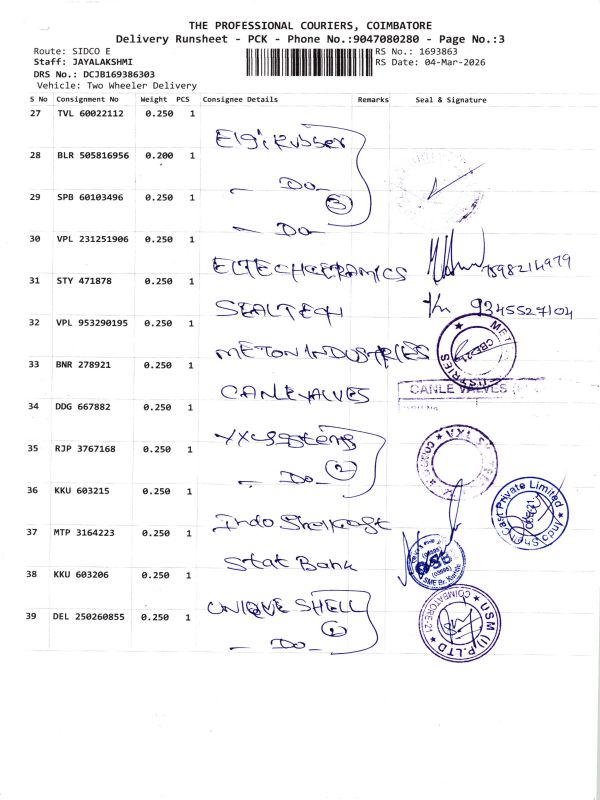 THE PROFESSIONAL COURIERS, COIMBATORE
Delivery Runsheet - PCK - Phone No.:9047080280 - Page No.:3
Route: SIDCO E RS No.: 1693863
Staff: JAYALAKSHMI RS Date: 04-Mar-2026
DRS No.: DCJB169386303
Vehicle: Two Wheeler Delivery
S No Consignment No Weight PCS Consignee Details Remarks Seal & Signature
27 TVL 60022112 0.250 1 Elgi Rubber
28 BLR 505816956 0.200 1 - Do -
29 SPB 60103496 0.250 1 - Do - 3
30 VPL 231251906 0.250 1 ELTECHCERAMICS 7598214979
31 STY 471878 0.250 1 SEALTECH 9345527104
32 VPL 953290195 0.250 1 METON INDUSTRIES
33 BNR 278921 0.250 1 CANLEVALVES CANLE VALVES
34 DDG 667882 0.250 1
35 RJP 3767168 0.250 1 - Do - 2
36 KKU 603215 0.250 1 Indo Shellcast Indo Shell Cast Private Limited
37 MTP 3164223 0.250 1 Stat Bank
38 KKU 603206 0.250 1 UNIQUE SHELL
39 DEL 250260855 0.250 1 - Do - USM (I) P.LTD COIMBATORE-21